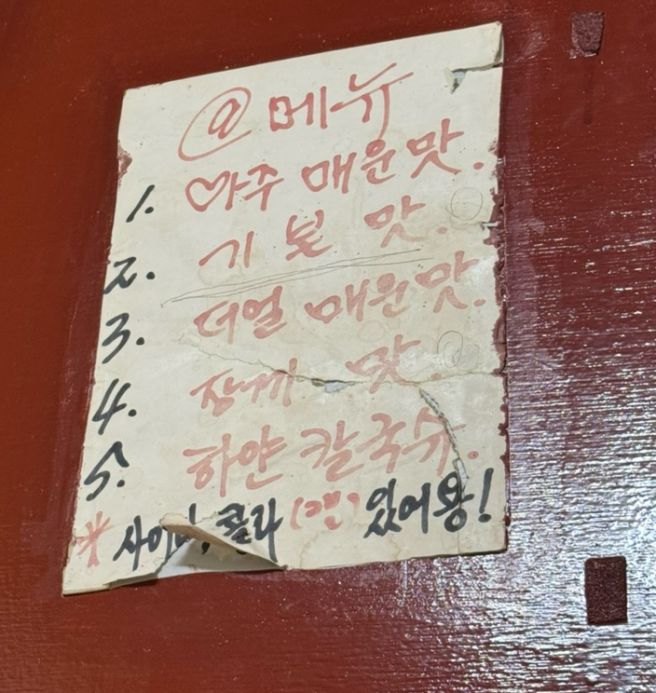 @ 메뉴
1. ♡아주 매운맛.
2. 기본 맛.
3. 더얼 매운맛.
4. 장끼 맛.
5. 하얀 칼국수.
* 사이다, 콜라 (캔) 있어용!